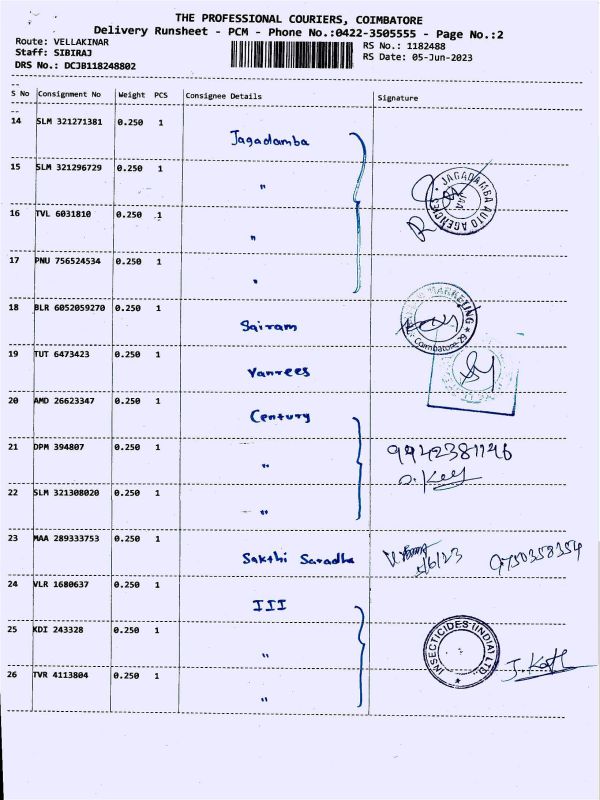 THE PROFESSIONAL COURIERS, COIMBATORE
Delivery Runsheet - PCM - Phone No.:0422-3505555 - Page No.:2
Route: VELLAKINAR
Staff: SIBIRAJ
DRS No.: DCJB118248802
RS No.: 1182488
RS Date: 05-Jun-2023
S No Consignment No Weight PCS Consignee Details Signature
14 SLM 321271381 0.250 1 Jagadamba
15 SLM 321296729 0.250 1 "
JAGADAMBA AUTO AGENCIES
16 TVL 6031810 0.250 1 "
17 PNU 756524534 0.250 1 "
18 BLR 6052059270 0.250 1 Sairam
MARKETING
Coimbatore
19 TUT 6473423 0.250 1 Vanrees
20 AMD 26623347 0.250 1 Century
21 DPM 394807 0.250 1 "
9942381146
22 SLM 321308020 0.250 1 "
23 MAA 289333753 0.250 1 Sakthi Saradha
5/6/23 9750358354
24 VLR 1680637 0.250 1 III
25 KDI 243328 0.250 1 "
INSECTICIDES (INDIA) LTD.
26 TVR 4113804 0.250 1 "